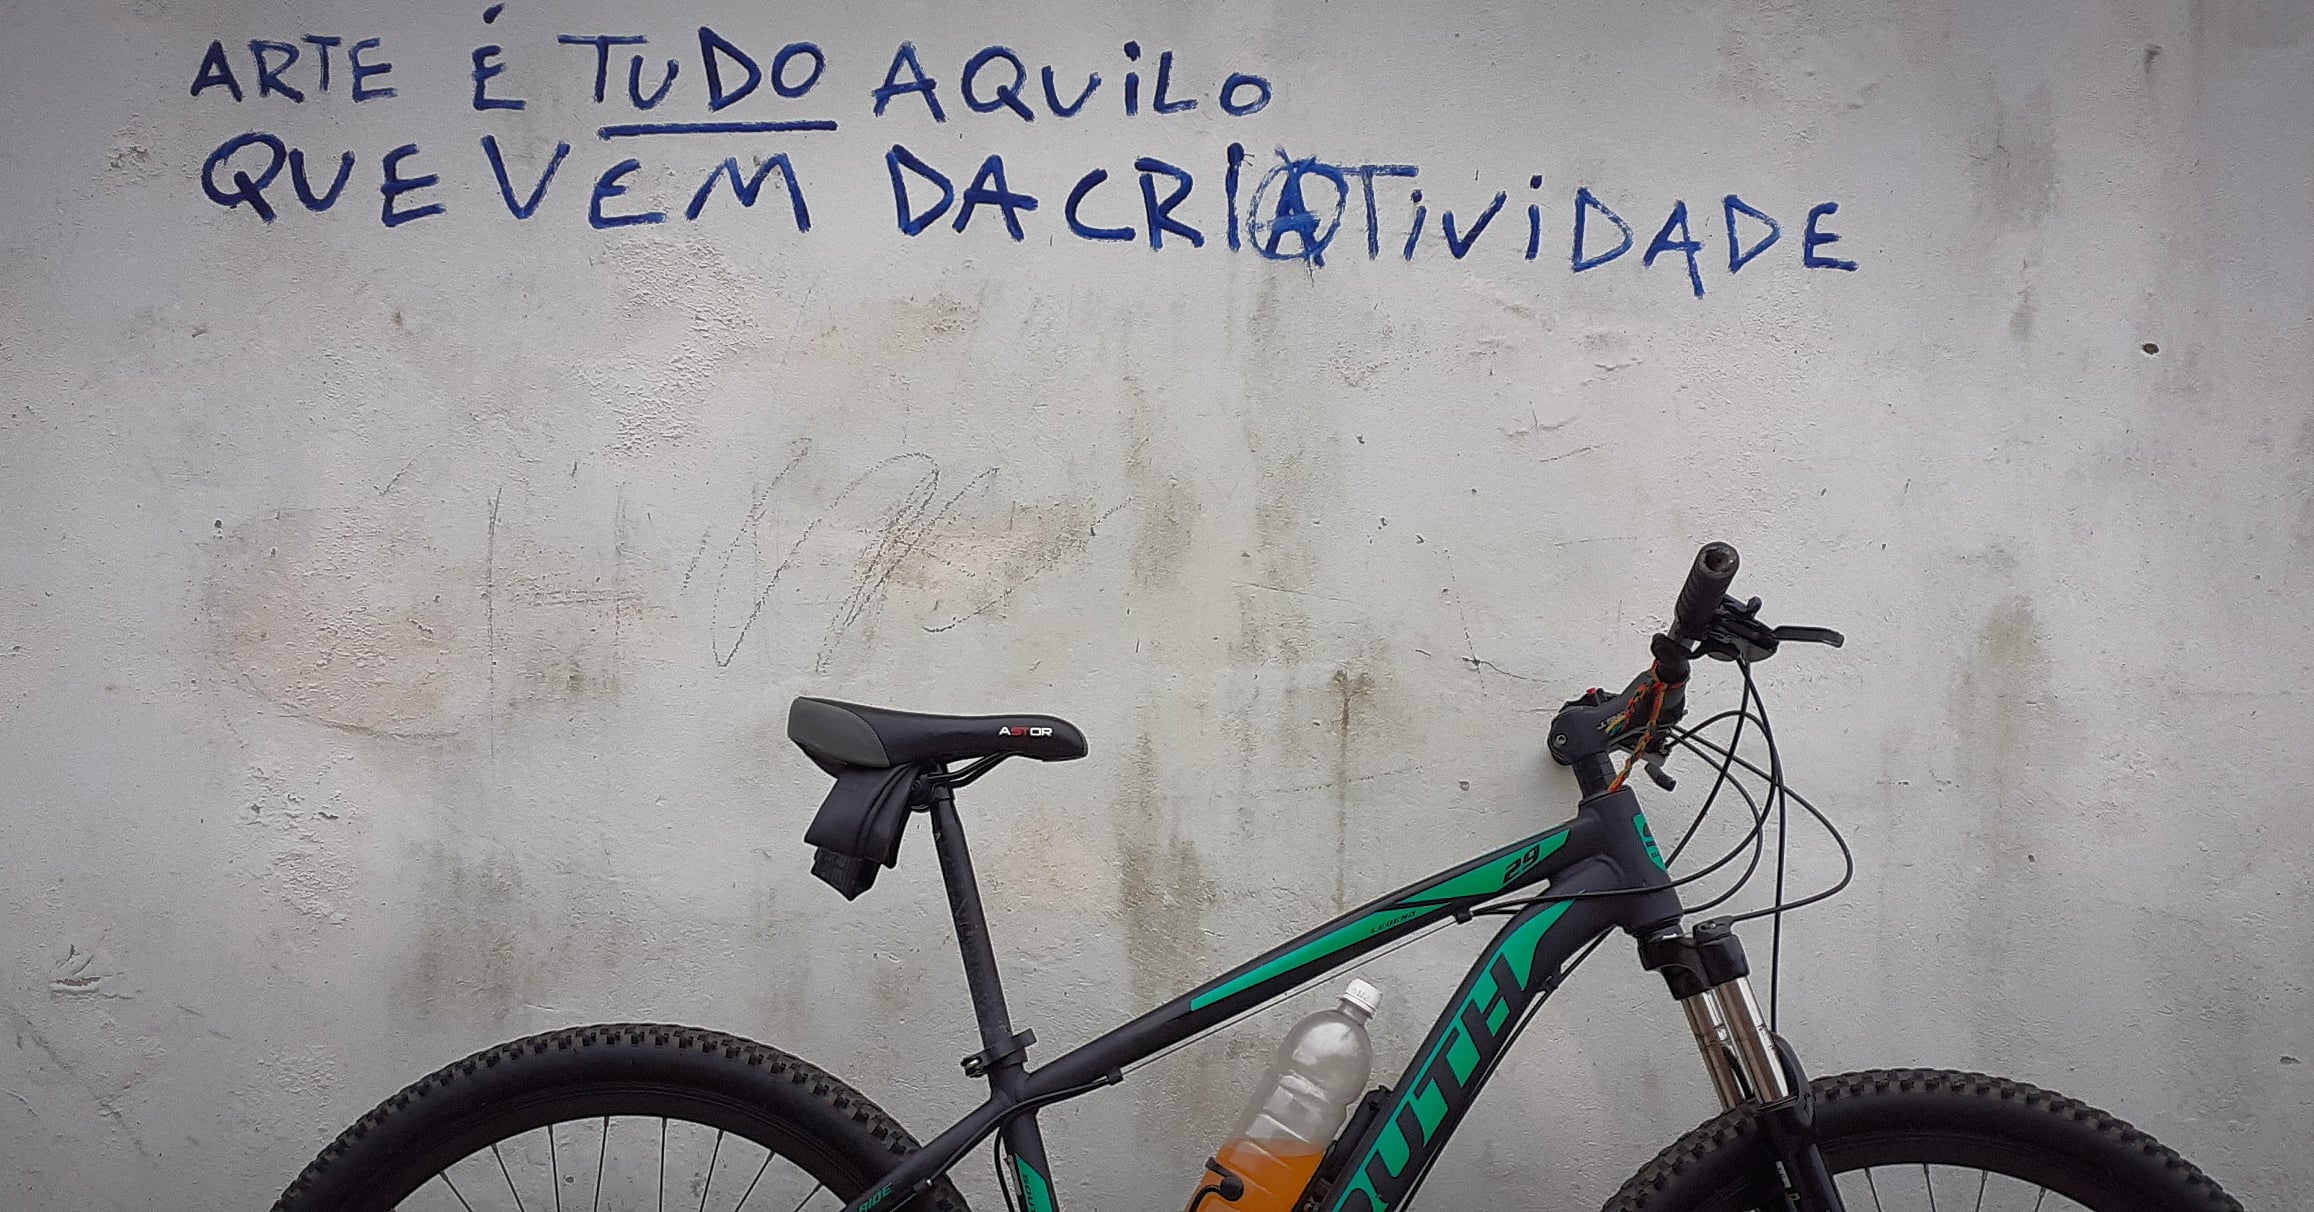 ARTE É TUDO AQUiLO
QUE VEM DA CRIATiViDADE
ASTOR
29
LEGEND
SOUTH
RIDE